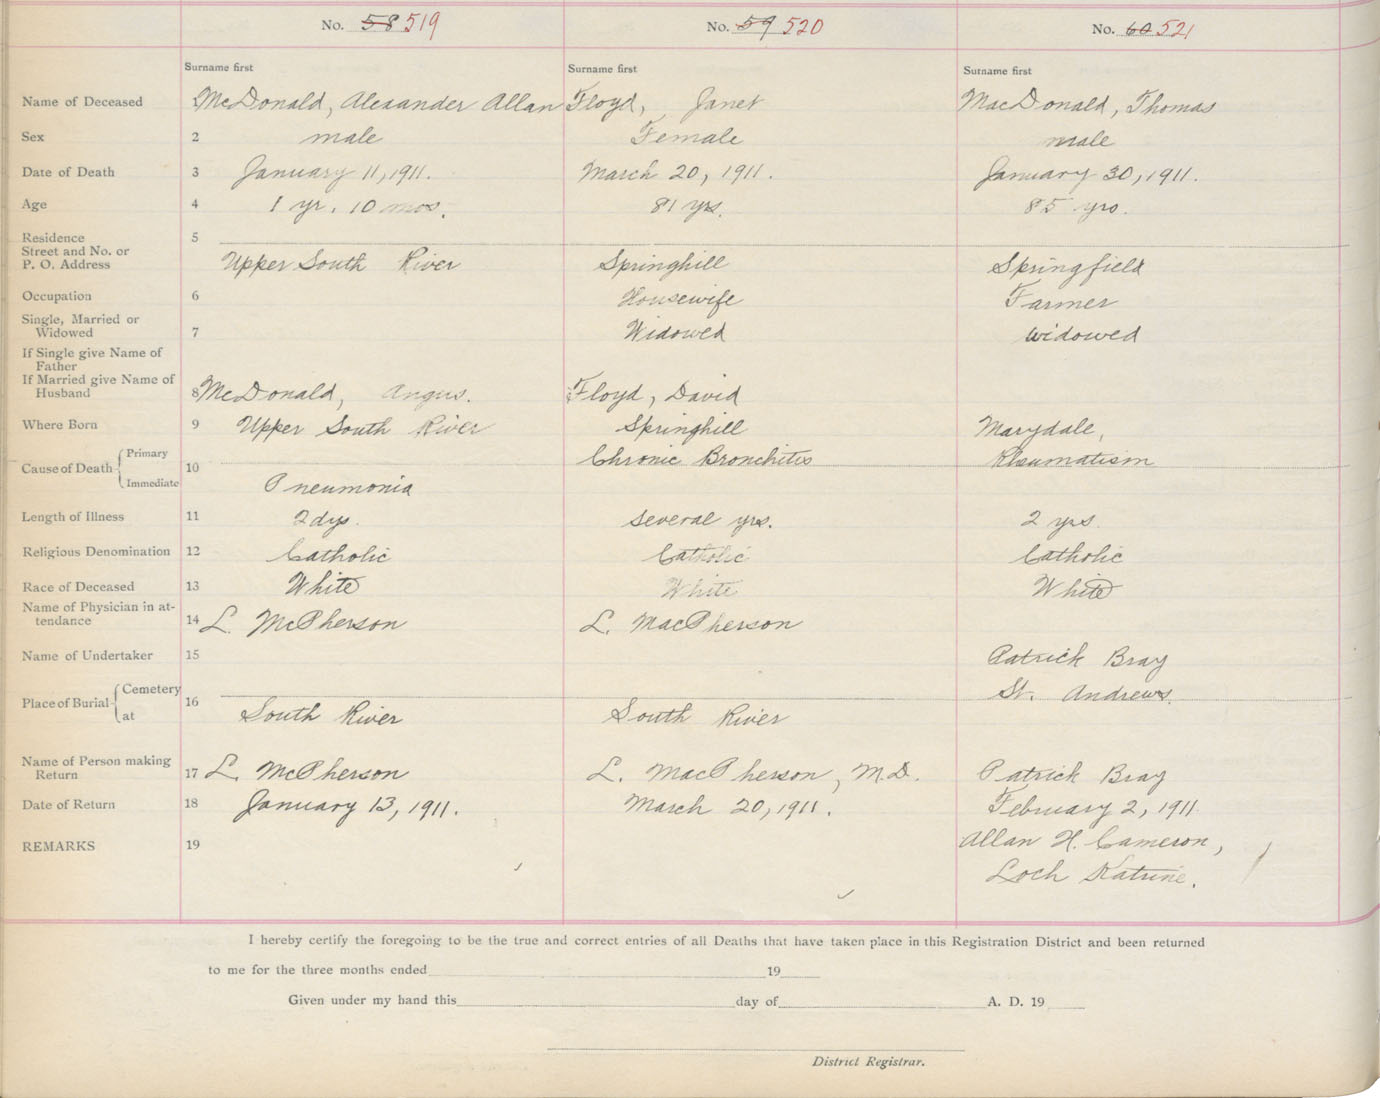 No. 58 519 No. 59 520 No. 60 521
Surname first Surname first Surname first
Name of Deceased 1 McDonald, Alexander Allan Floyd, Janet MacDonald, Thomas
Sex 2 male Female male
Date of Death 3 January 11, 1911. March 20, 1911. January 30, 1911.
Age 4 1 yr. 10 mos. 81 yrs. 85 yrs.
Residence 5
Street and No. or
P. O. Address Upper South River Springhill Springfield
Occupation 6 Housewife Farmer
Single, Married or
Widowed 7 Widowed widowed
If Single give Name of
Father
If Married give Name of
Husband 8 McDonald, Angus. Floyd, David
Where Born 9 Upper South River Springhill Marydale,
Cause of Death Primary 10 Chronic Bronchitis Rheumatism
Immediate Pneumonia
Length of Illness 11 2 dys. several yrs. 2 yrs.
Religious Denomination 12 Catholic Catholic Catholic
Race of Deceased 13 White White White
Name of Physician in at-
tendance 14 L. McPherson L. MacPherson
Name of Undertaker 15 Patrick Bray
Place of Burial Cemetery 16 St. Andrews.
at South River South River
Name of Person making
Return 17 L. McPherson L. MacPherson, M.D. Patrick Bray
Date of Return 18 January 13, 1911. March 20, 1911. February 2, 1911
REMARKS 19 Allan H. Cameron,
Loch Katrine.
I hereby certify the foregoing to be the true and correct entries of all Deaths that have taken place in this Registration District and been returned
to me for the three months ended 19
Given under my hand this day of A. D. 19
District Registrar.